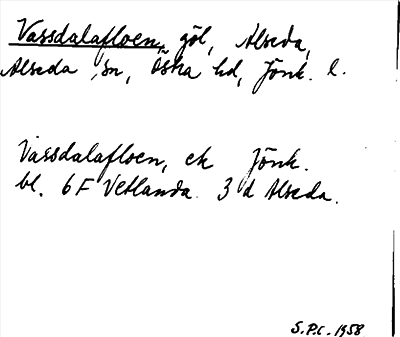 Vassdalafloen, göl, Alseda,
Alseda sn, Östra hd, Jönk. l.
Vassdalafloen, ek Jönk.
bl. 6 F Vetlanda 3 d Alseda.
S.P.C. 1958